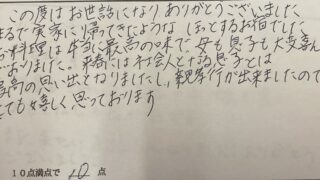 この度はお世話になり ありがとうございました
まるで実家に帰ってきたような ほっとするお宿でした
料理は本当に最高の味で、母も息子も大変喜ん
でおりました。来春には社会人となる息子とは
最高の思い出となりましたし、親孝行が出来ましたので
とても嬉しく思っております
10点満点で 点